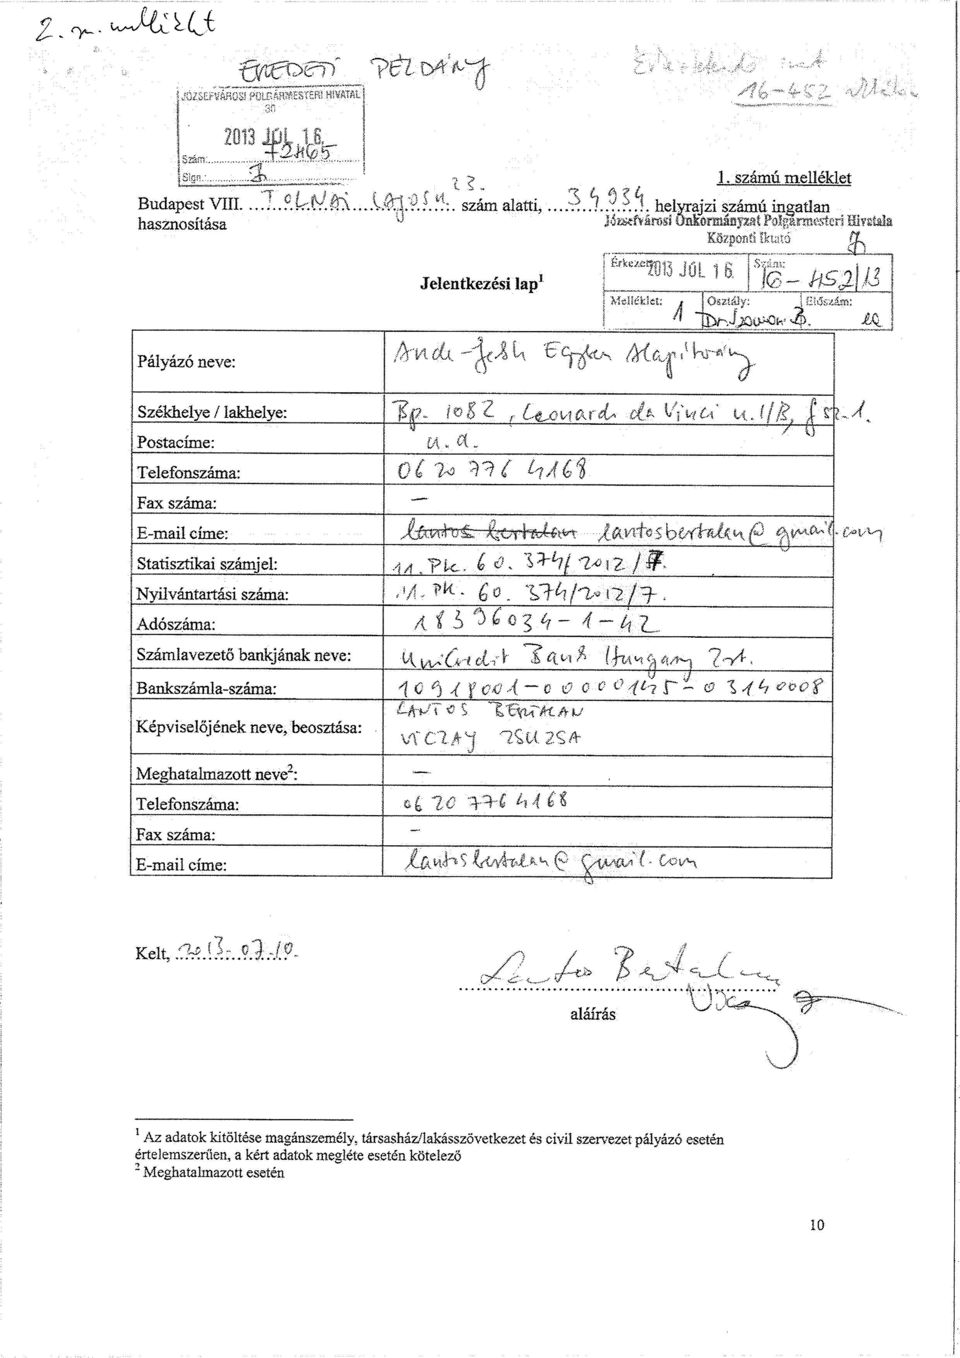 2. sz. melléklet
EREDETI PÉLDÁNY
JÓZSEFVÁROSI POLGÁRMESTERI HIVATAL
30
2013 JÚL 16.
Szám:
Sign.:
16-452
1. számú melléklet
23.
Budapest VIII. TOLNAI LAJOS u. szám alatti, 34934 helyrajzi számú ingatlan
hasznosítása
Józsefvárosi Önkormányzat Polgármesteri Hivatala
Központi Iktató
Érkezett 2013 JÚL 16. Szám: 16-452/13
Jelentkezési lap¹
Melléklet: 1 Osztály: Dr. B. Előszám:
Pályázó neve: Egyben Alapítvány
Székhelye / lakhelye: Bp. 1082, Leonardo da Vinci u. 1/B, fsz. 1.
Postacíme: u. a.
Telefonszáma: 06 20 776 4168
Fax száma: —
E-mail címe: lantos bertalan lantosbertalan@gmail.com
Statisztikai számjel: 11. Pk. 60. 374/2012/7.
Nyilvántartási száma: 11. Pk. 60. 374/2012/7.
Adószáma: 18396034-1-42
Számlavezető bankjának neve: UniCredit Bank Hungary Zrt.
Bankszámla-száma: 10918001-00000145-03140008
LANTOS BERTALAN
Képviselőjének neve, beosztása:
VICZAY ZSUZSA
Meghatalmazott neve²: —
Telefonszáma: 06 20 776 4168
Fax száma: —
E-mail címe: lantosbertalan@gmail.com
Kelt, 2013-07-10.
Lantos Bertalan
aláírás
¹ Az adatok kitöltése magánszemély, társasház/lakásszövetkezet és civil szervezet pályázó esetén
értelemszerűen, a kért adatok megléte esetén kötelező
² Meghatalmazott esetén
10